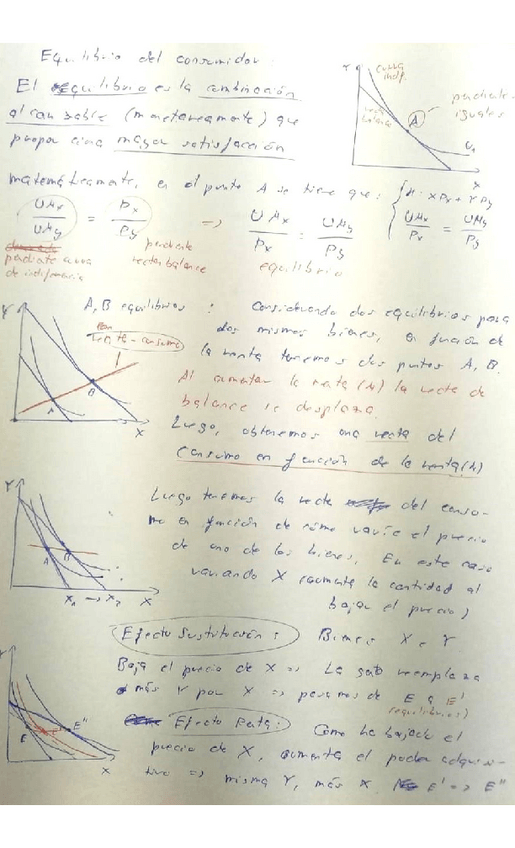 Equilibrio del consumidor.
El equilibrio es la combinación
alcanzable (monetareamente) que
proporciona mayor satisfacción
Y
curva
indif.
recta
balance
A
pendientes
iguales
U1
X
matemáticamente, en el punto A se tiene que: { M = XPx + YPy
UMx / UMy = Px / Py => UMx / Px = UMy / Py
{ UMx / Px = UMy / Py
pendiente curva
de indiferencia
pendiente
recta balance
equilibrio
Y
A, B equilibrios : Considerando dos equilibrios para
dos mismos bienes, en función de
la renta tenemos dos puntos A, B.
renta-consumo
A
B
X
Al aumentar la renta (M) la recta de
balance se desplaza
Luego, obtenemos una recta del
consumo en función de la renta (M)
Y
A
B
X1 -> X2
X
Luego tenemos la recta del consu-
mo en función de cómo varíe el precio
de uno de los bienes. En este caso
variando X (aumenta la cantidad al
bajar el precio)
Efecto Sustitución: Bienes X e Y
Baja el precio de X => La gente reemplaza
más Y por X => pasamos de E a E'
(equilibrios)
Efecto Renta: Como ha bajado el
precio de X, aumenta el poder adquisi-
tivo => misma Y, más X. E' => E''
E
E'
E''
X